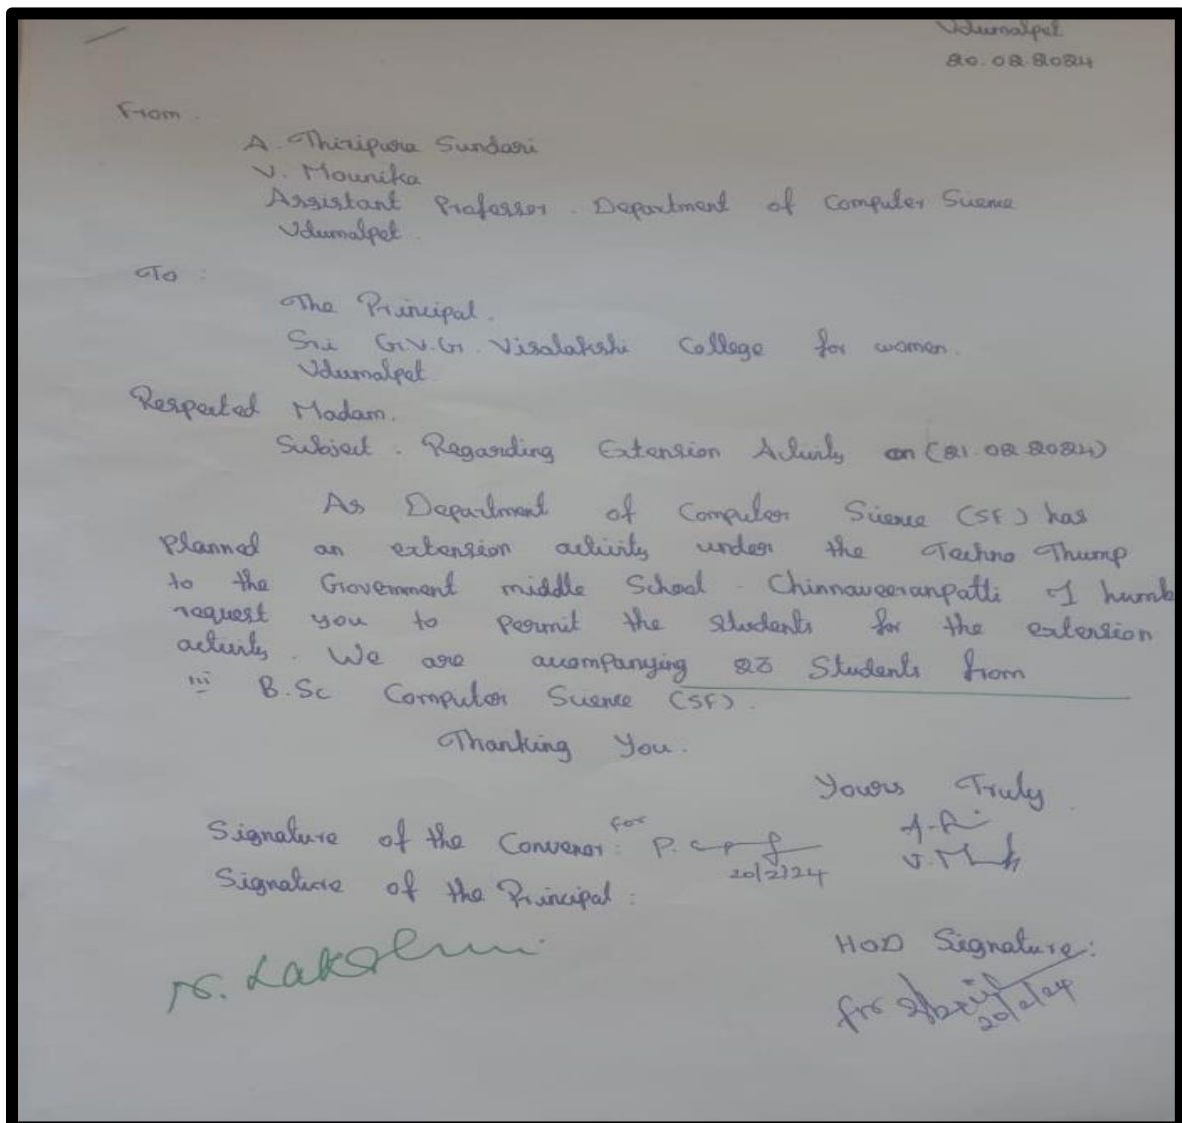 Udumalpet
20.02.2024
From.
A. Thiripura Sundari
V. Mounika
Assistant Professor. Department of Computer Science
Udumalpet.
To :
The Principal.
Sri G.V.G. Visalakshi College for women.
Udumalpet.
Respected Madam.
Subject. Regarding Extension Activity on (21.02.2024)
As Department of Computer Science (SF) has
planned an extension activity under the Techno Thump
to the Government middle School - Chinnaveeranpatti I humb
request you to permit the students for the extension
activity. We are accompanying 23 Students from
iii B.Sc Computer Science (SF).
Thanking You.
Yours Truly
Signature of the Convenor: for P.
20/2/24
V.M
Signature of the Principal :
HOD Signature:
N. Lakshmi
for
20/2/24